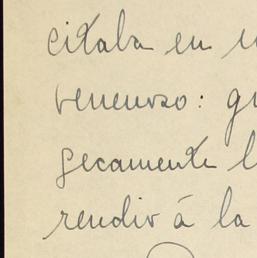 citaba en
venenoso: qu
gecamente l
rendir á la